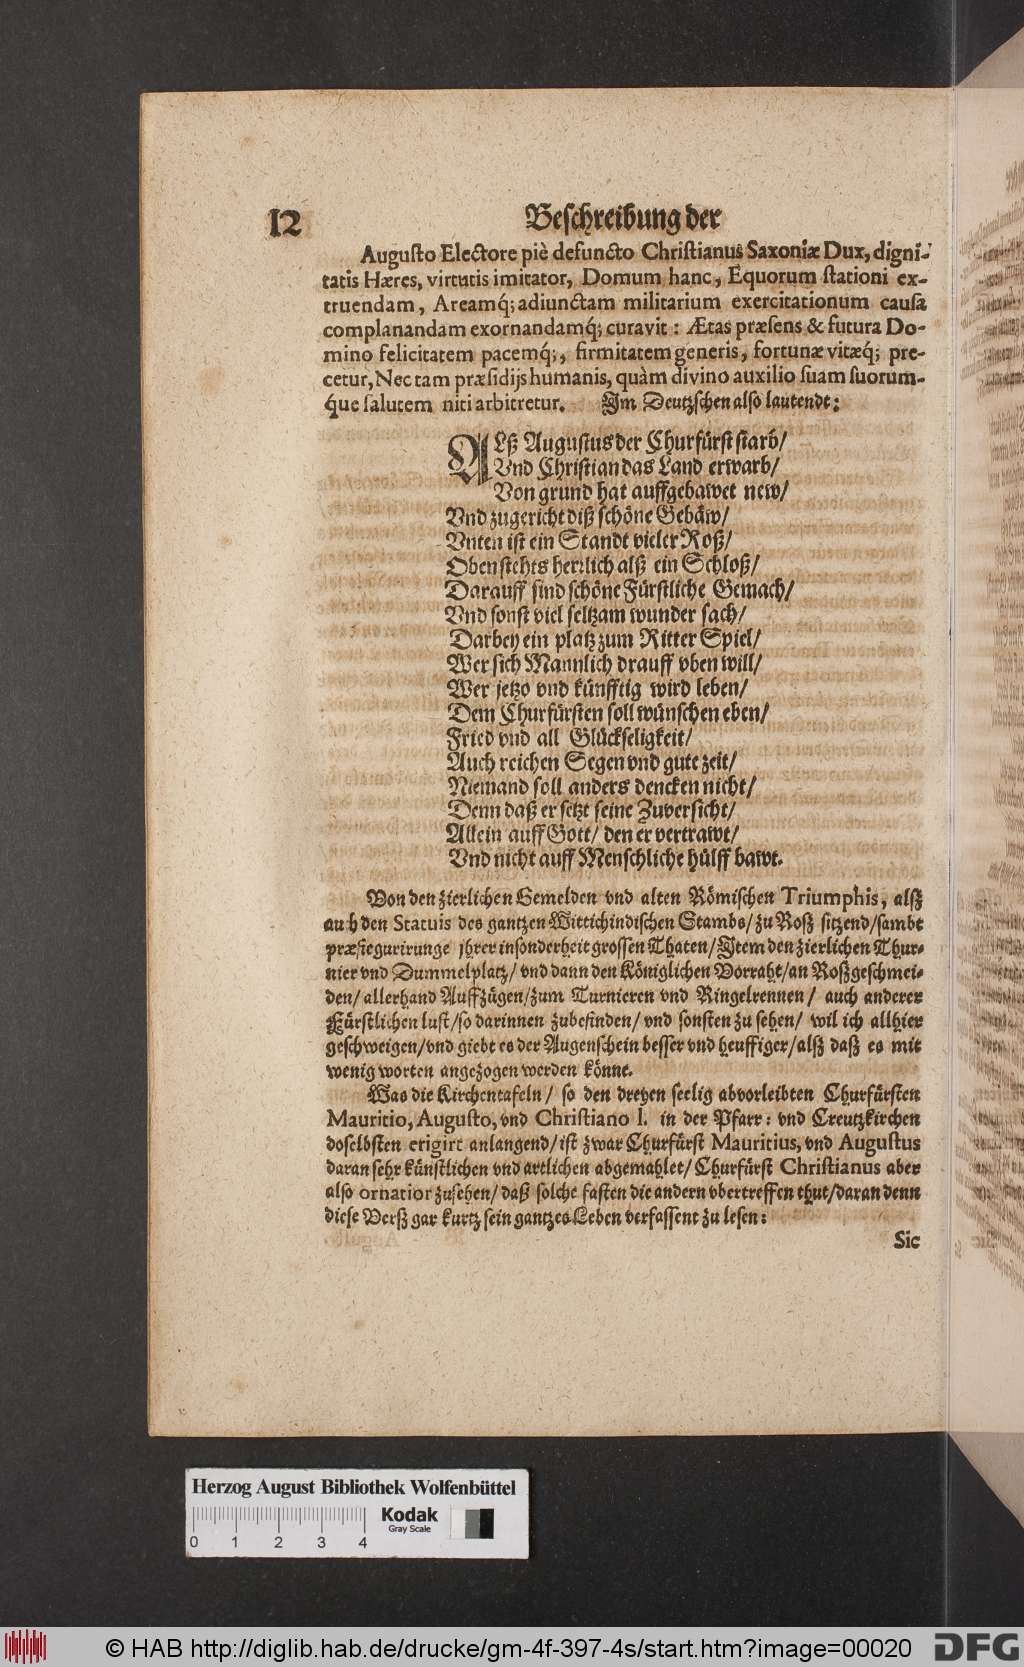 12 Beschreibung der
Augusto Electore piè defuncto Christianus Saxoniæ Dux, digni-
tatis Hæres, virtutis imitator, Domum hanc, Equorum stationi ex-
truendam, Areamq́; adiunctam militarium exercitationum causâ
complanandam exornandamq́; curavit: Ætas præsens & futura Do-
mino felicitatem pacemq́;, firmitatem generis, fortunæ vitæq́; pre-
cetur, Nec tam præsidijs humanis, quàm divino auxilio suam suorum-
q́ue salutem niti arbitretur. Im Deutzschen also lautendt:
ALß Augustus der Churfürst starb/
Vnd Christian das Land erwarb/
Von grund hat auffgebawet new/
Vnd zugericht diß schöne Gebäw/
Vnten ist ein Standt vieler Roß/
Oben stehts herrlich alß ein Schloß/
Darauff sind schöne Fürstliche Gemach/
Vnd sonst viel seltzam wunder sach/
Darbey ein platz zum Ritter Spiel/
Wer sich Mannlich drauff vben will/
Wer jetzo vnd künfftig wird leben/
Dem Churfürsten soll wünschen eben/
Fried vnd all Glückseligkeit/
Auch reichen Segen vnd gute zeit/
Niemand soll anders dencken nicht/
Denn daß er setzt seine Zuversicht/
Allein auff Gott/ den er vertrawt/
Vnd nicht auff Menschliche hülff bawt.
Von den zierlichen Gemelden vnd alten Römischen Triumphis, alß
auch den Statuis des gantzen Wittichindischen Stambs/ zu Roß sitzend/ sambt
præfiegurirunge jhrer insonderheit grossen Thaten/ Item den zierlichen Thur-
nier vnd Dummelplatz/ vnd dann den Königlichen Vorraht/ an Roßgeschmei-
den/ allerhand Auffzügen/ zum Turnieren vnd Ringelrennen/ auch anderer
Fürstlichen lust/ so darinnen zubefinden/ vnd sonsten zu sehen/ wil ich allhier
geschweigen/ vnd giebt es der Augenschein besser vnd heuffiger/ alß daß es mit
wenig worten angezogen werden könne.
Was die Kirchentafeln/ so den dreyen seelig abvorleibten Churfürsten
Mauritio, Augusto, vnd Christiano I. in der Pfarr: vnd Creutzkirchen
doselbsten erigirt anlangend/ ist zwar Churfürst Mauritius, vnd Augustus
daran sehr künstlichen vnd artlichen abgemahlet/ Churfürst Christianus aber
also ornatior zusehen/ daß solche fasten die andern vbertreffen thut/ daran denn
diese Verß gar kurtz sein gantzes Leben verfassent zu lesen:
Sic
Herzog August Bibliothek Wolfenbüttel
0 1 2 3 4 Kodak
Gray Scale
© HAB http://diglib.hab.de/drucke/gm-4f-397-4s/start.htm?image=00020 DFG